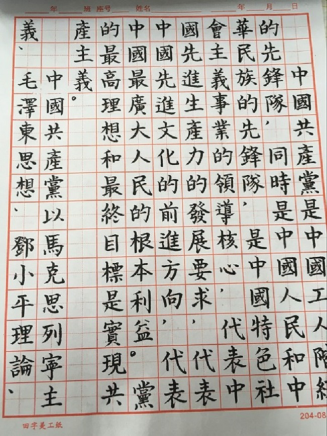 中國共產黨是中國工人階級
的先鋒隊，同時是中國人民和中
華民族的先鋒隊，是中國特色社
會主義事業的領導核心，代表中
國先進生產力的發展要求，代表
中國先進文化的前進方向，代表
中國最廣大人民的根本利益。黨
的最高理想和最終目標是實現共
產主義。
中國共產黨以馬克思列寧主
義、毛澤東思想、鄧小平理論、
204-08